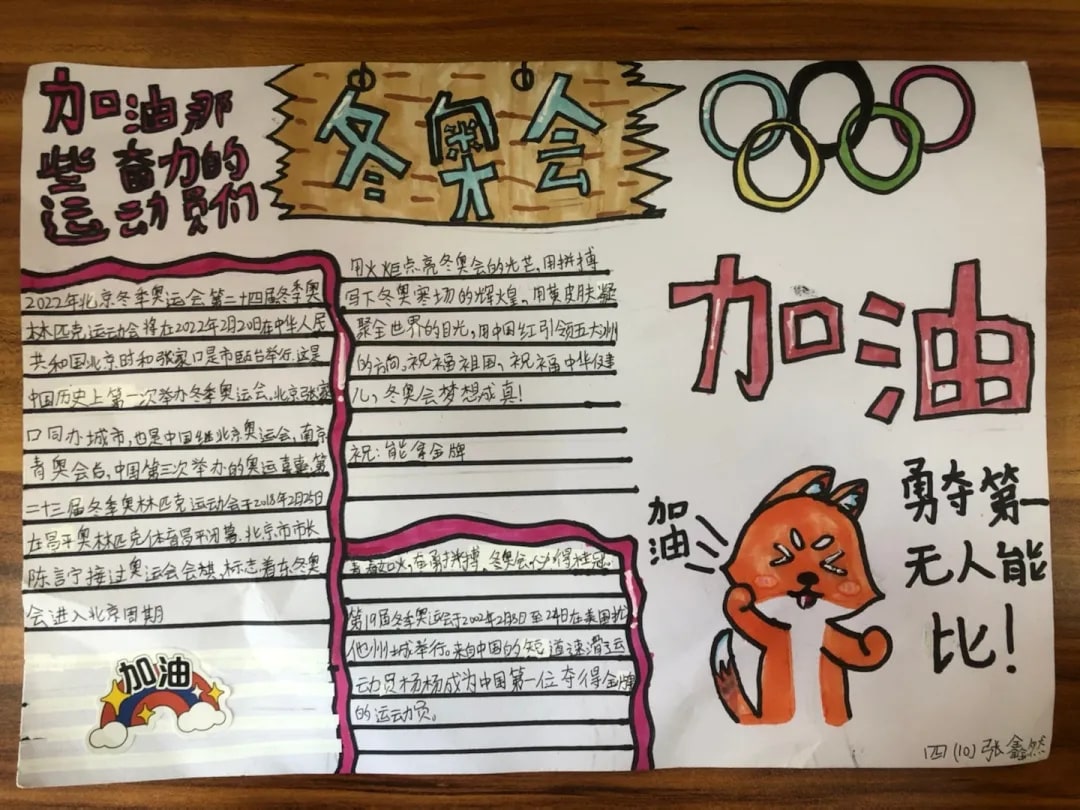 加油那
些奋力的
运动员们
冬奥会
2022年北京冬季奥运会第二十四届冬季奥
林匹克运动会将在2022年2月20日在中华人民
共和国北京时和张家口是市
举行.这是
中国历史上第一次举办冬季奥运会.北京张家
口同办城市,也是中国继北京奥运会,南京
青奥会后,中国第三次举办的奥运
第
二十三届冬季奥林匹克运动会于2018年2月25日
在昌平奥林匹克体育昌平闭幕.北京市市长
陈言宁接过奥运会会旗,标志着东冬奥
会进入北京周期
加油
用火炬点亮冬奥会的光芒,用拼搏
写下冬奥赛场的辉煌,用黄皮肤凝
聚全世界的目光,用中国红引领五大洲
的方向,祝福祖国,祝福中华健
儿,冬奥会梦想成真!
祝:能拿金牌
奋勇拼搏,冬奥会
得桂冠.
第19届冬季奥运会于2002年2月8日至24日在美国犹
他州
城举行.来自中国的短道速滑运
动员杨杨成为中国第一位夺得金牌
的运动员。
加油
加
油
勇夺第一
无人能
比!
四(10)张鑫然